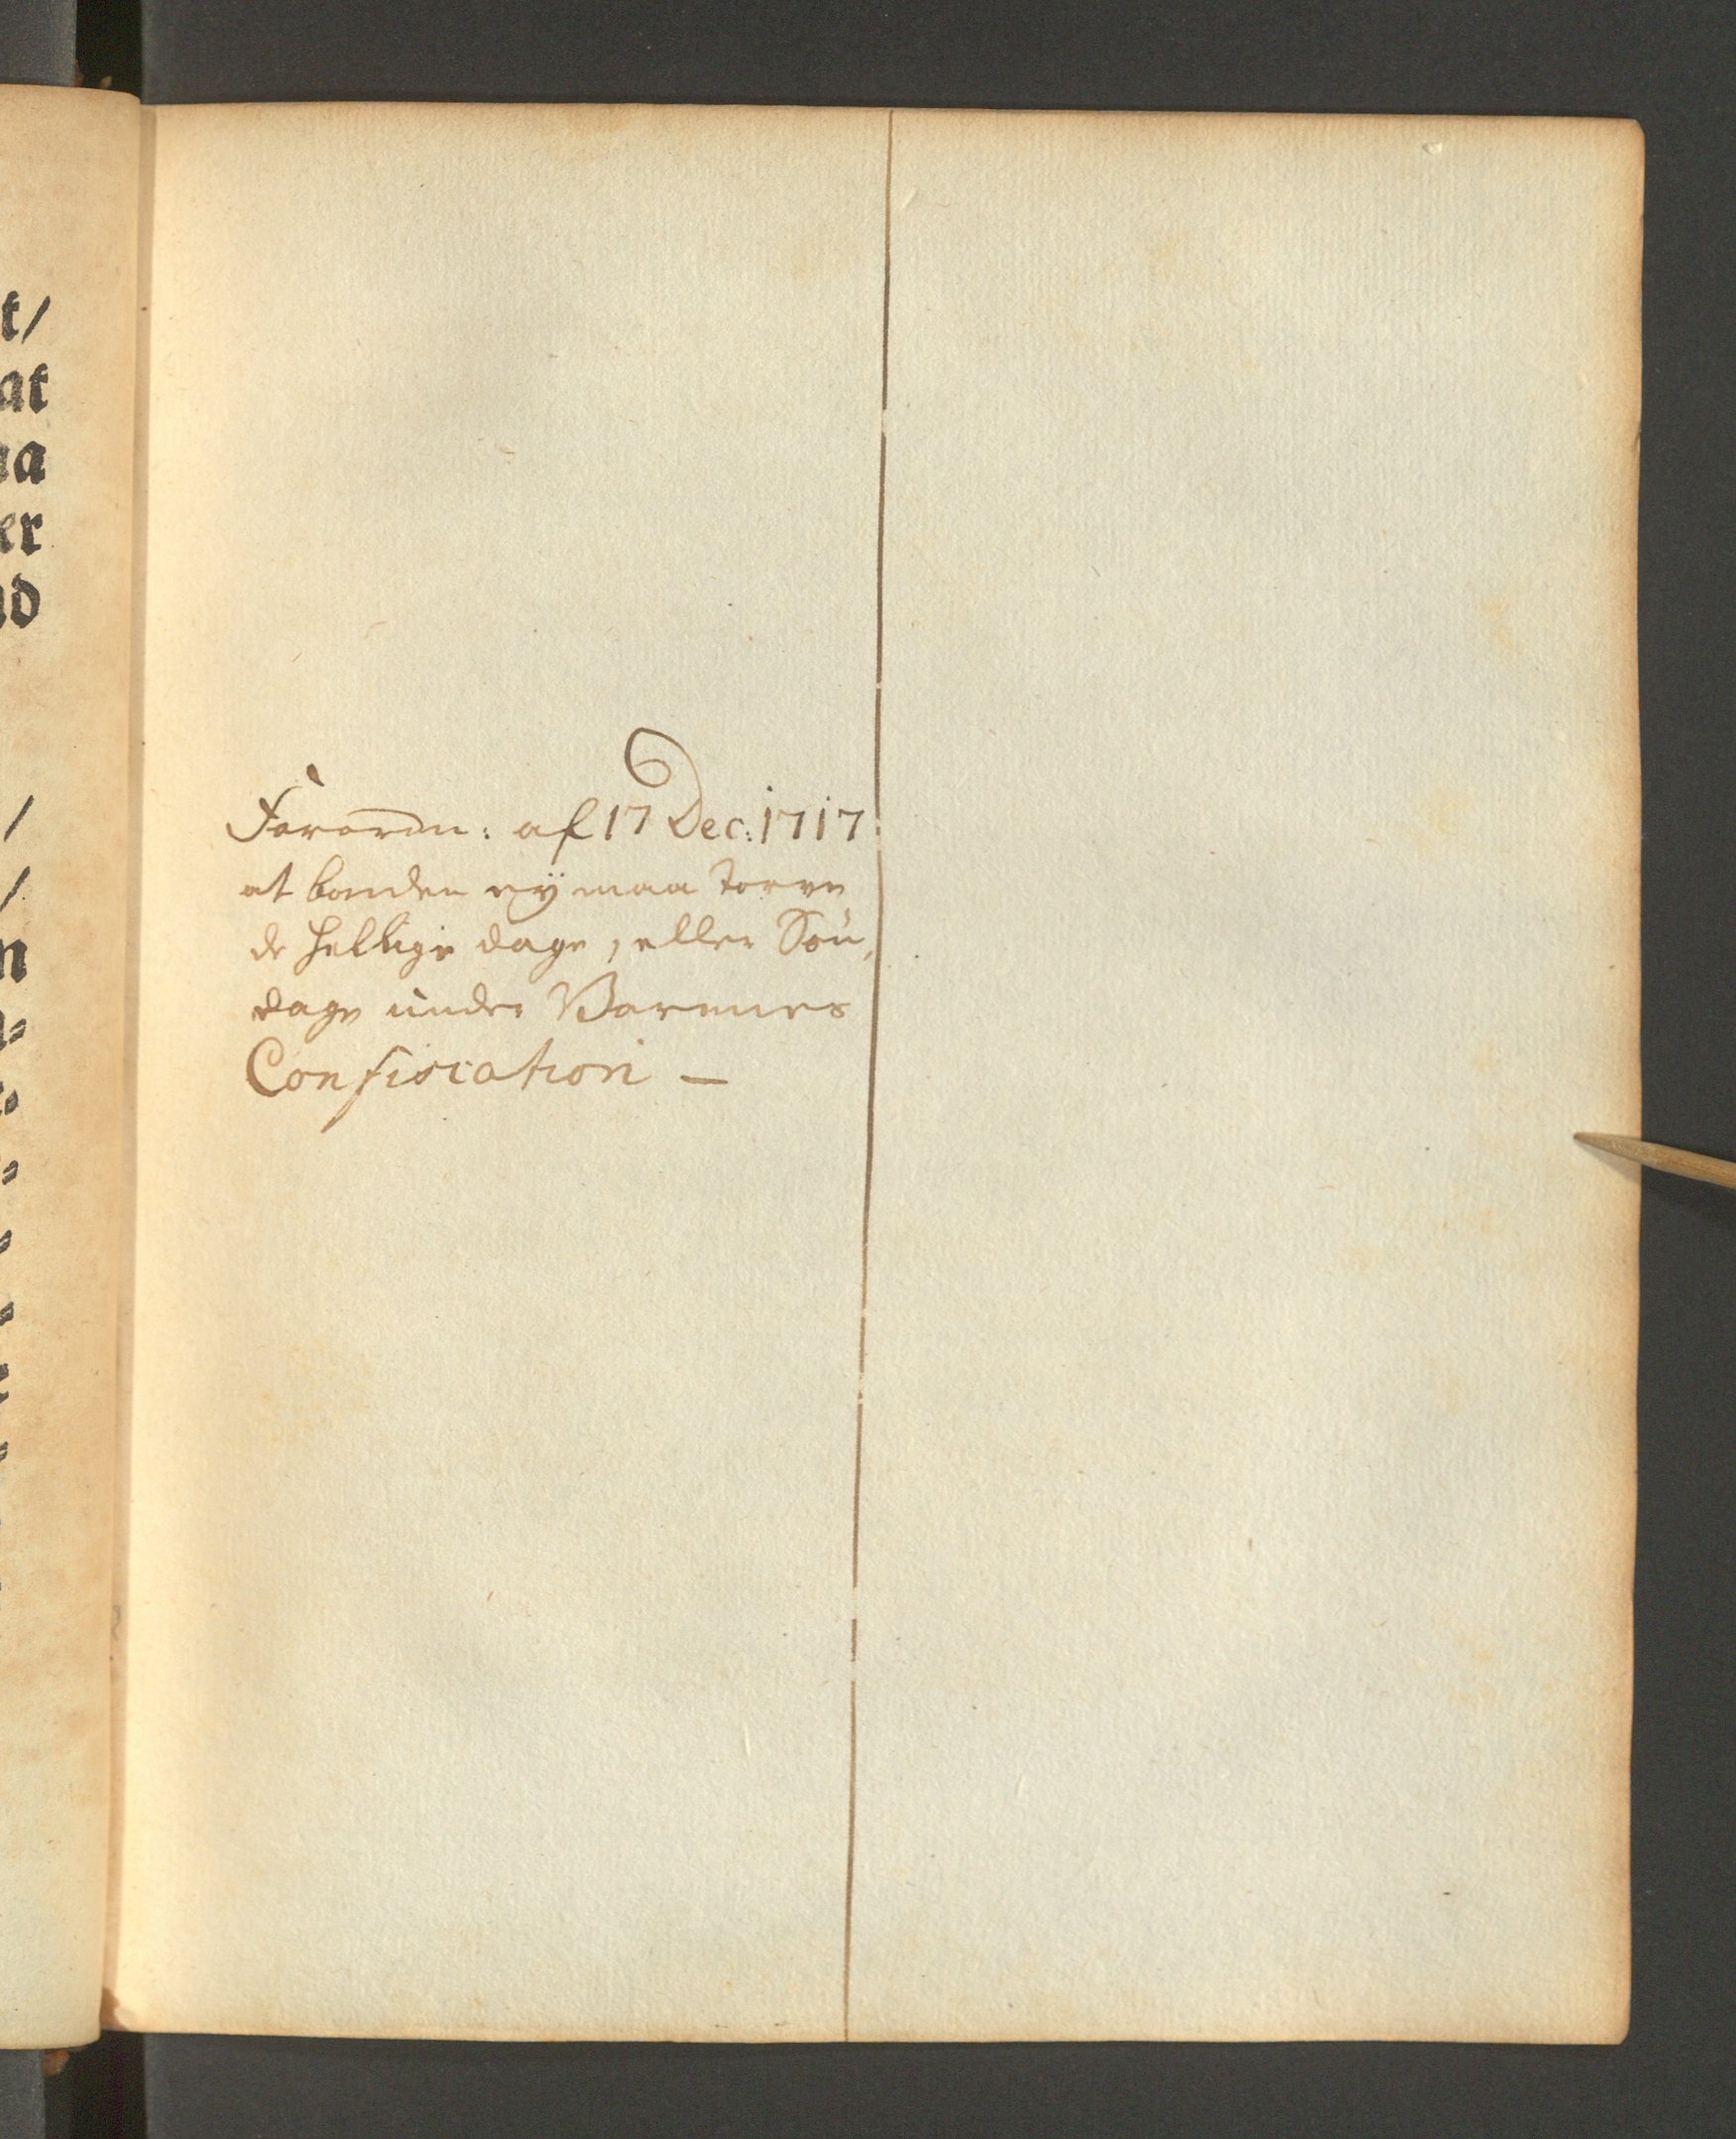 t/
at
aa
er
nd
/
/
n
Forordn: af 17 Dec: 1717
at bonden ey maa torve
de hellige dage, eller Søn,
dage under Varenes
Confiscation –